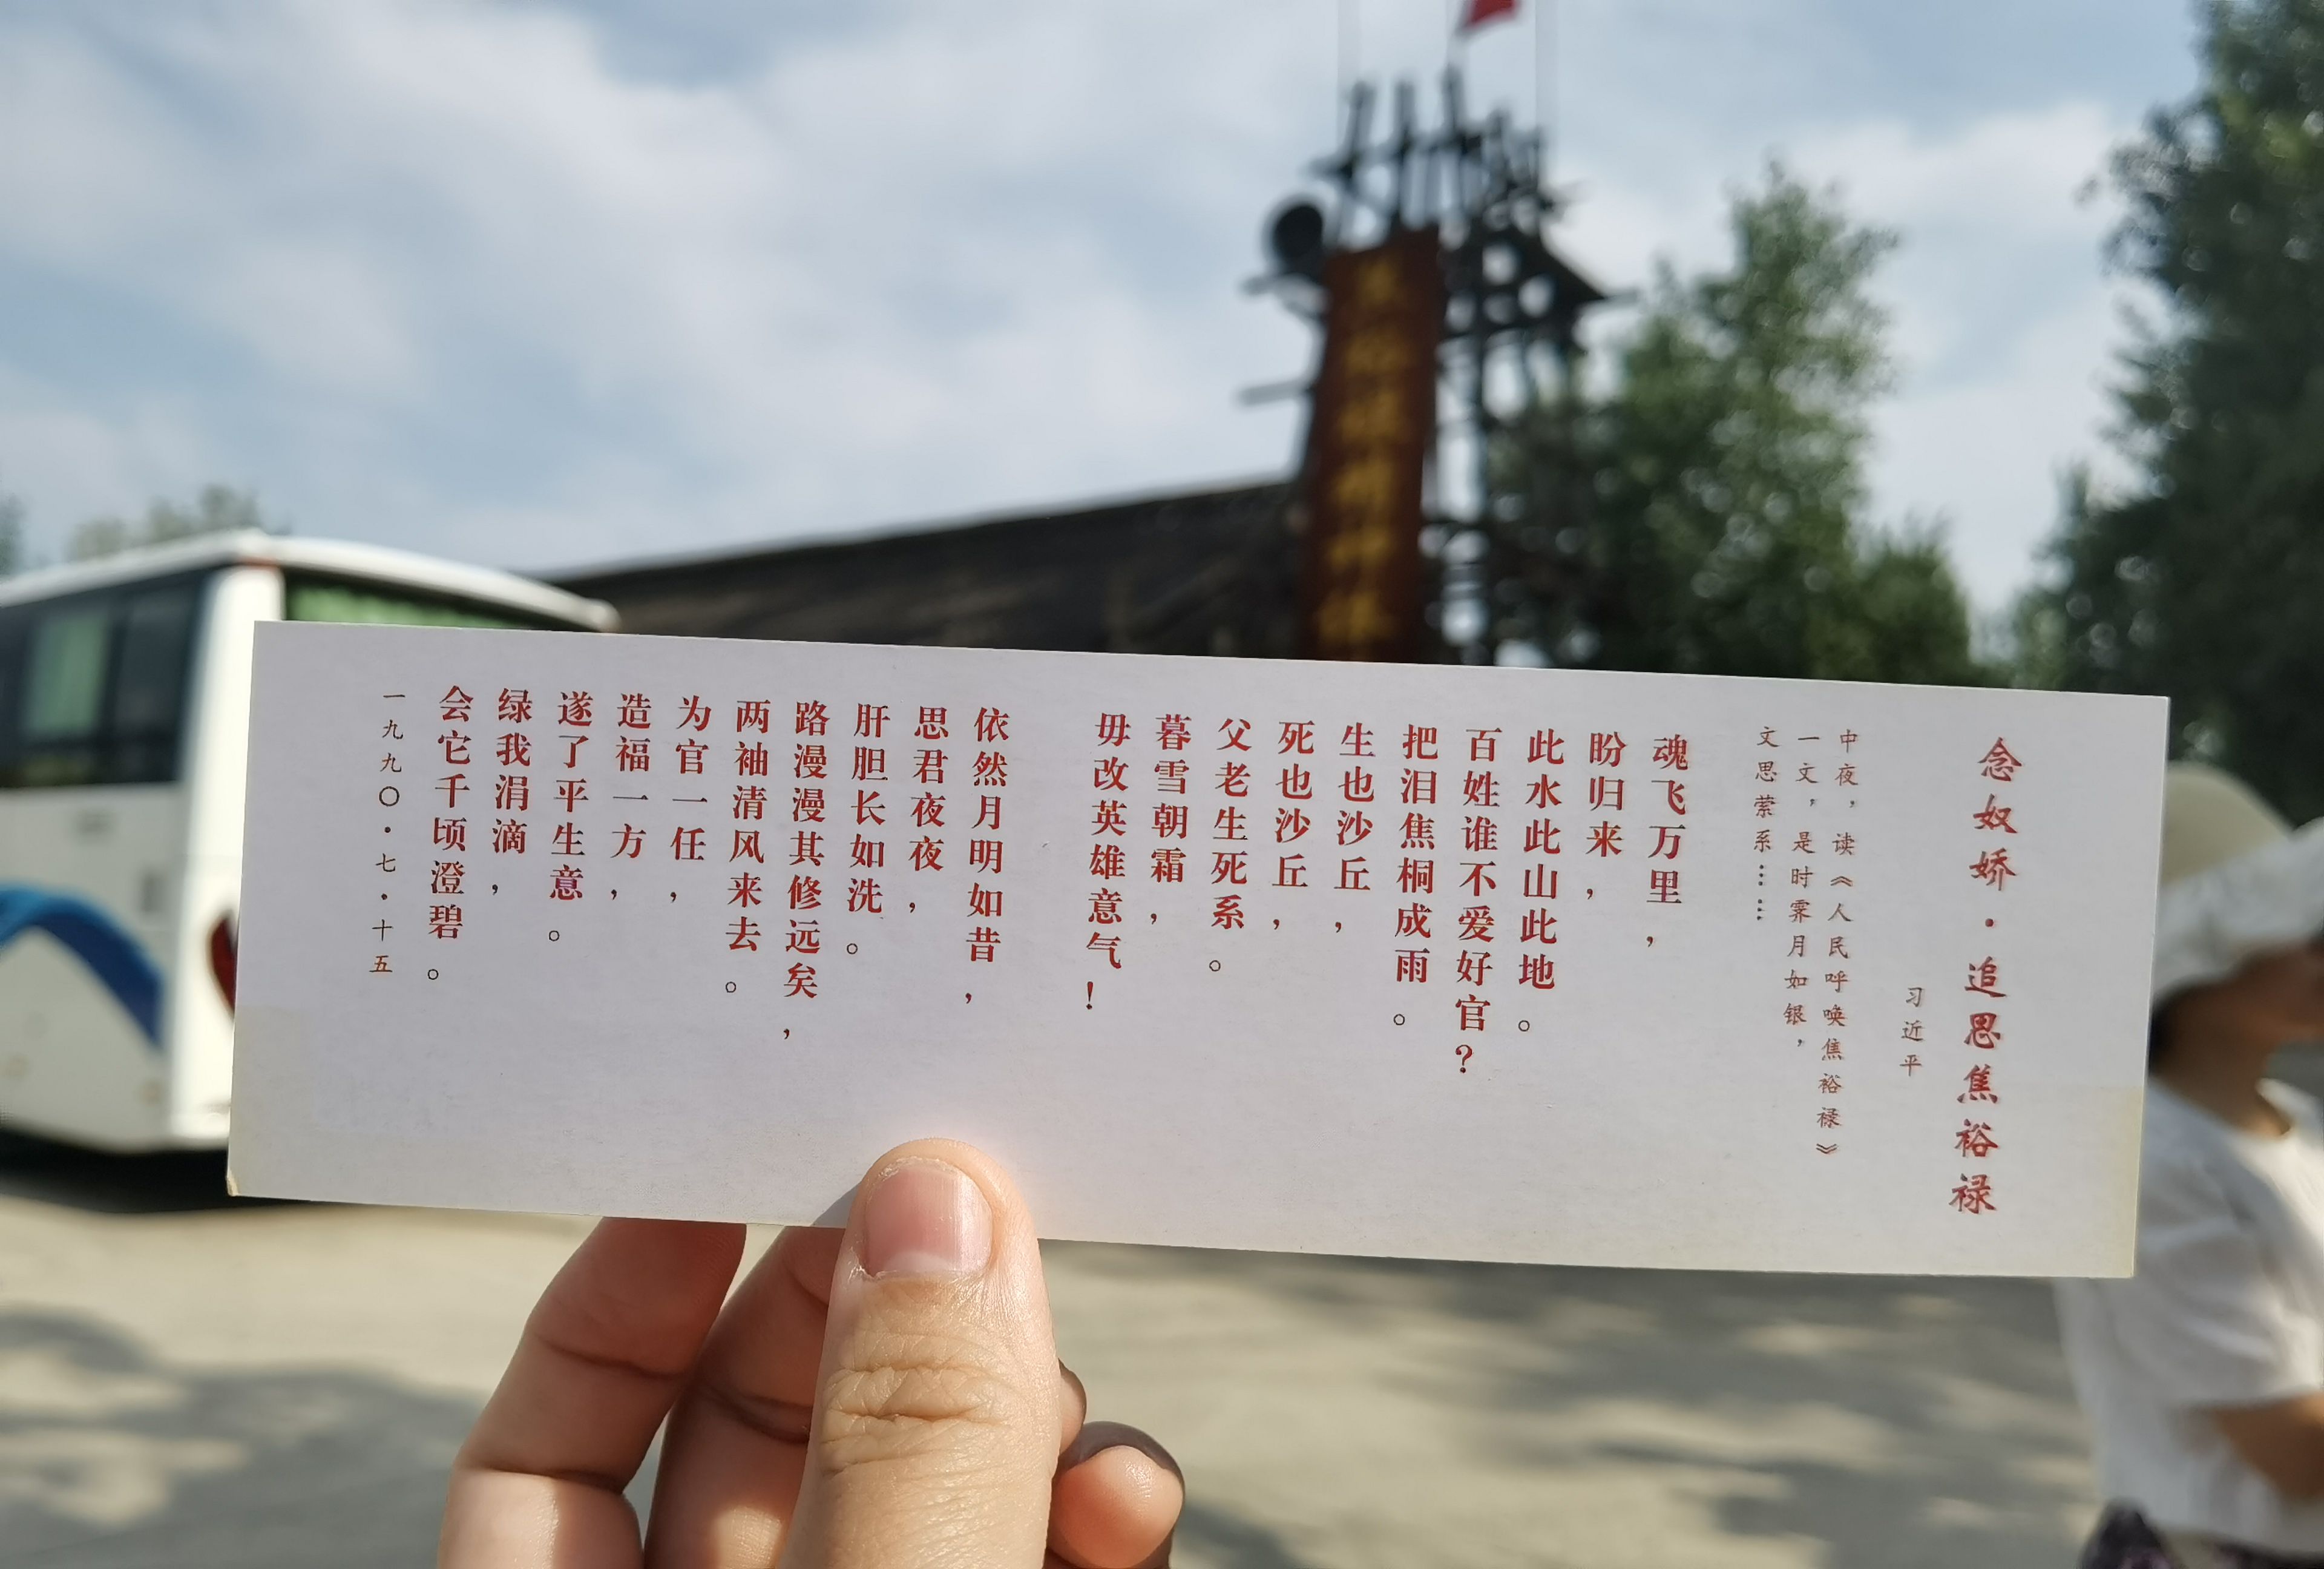 念奴娇·追思焦裕禄
习近平
中夜，读《人民呼唤焦裕禄》
一文，是时霁月如银，
文思萦系……
魂飞万里，
盼归来，
此水此山此地。
百姓谁不爱好官？
把泪焦桐成雨。
生也沙丘，
死也沙丘，
父老生死系。
暮雪朝霜，
毋改英雄意气！
依然月明如昔，
思君夜夜，
肝胆长如洗。
路漫漫其修远矣，
两袖清风来去。
为官一任，
造福一方，
遂了平生意。
绿我涓滴，
会它千顷澄碧。
一九九〇·七·十五